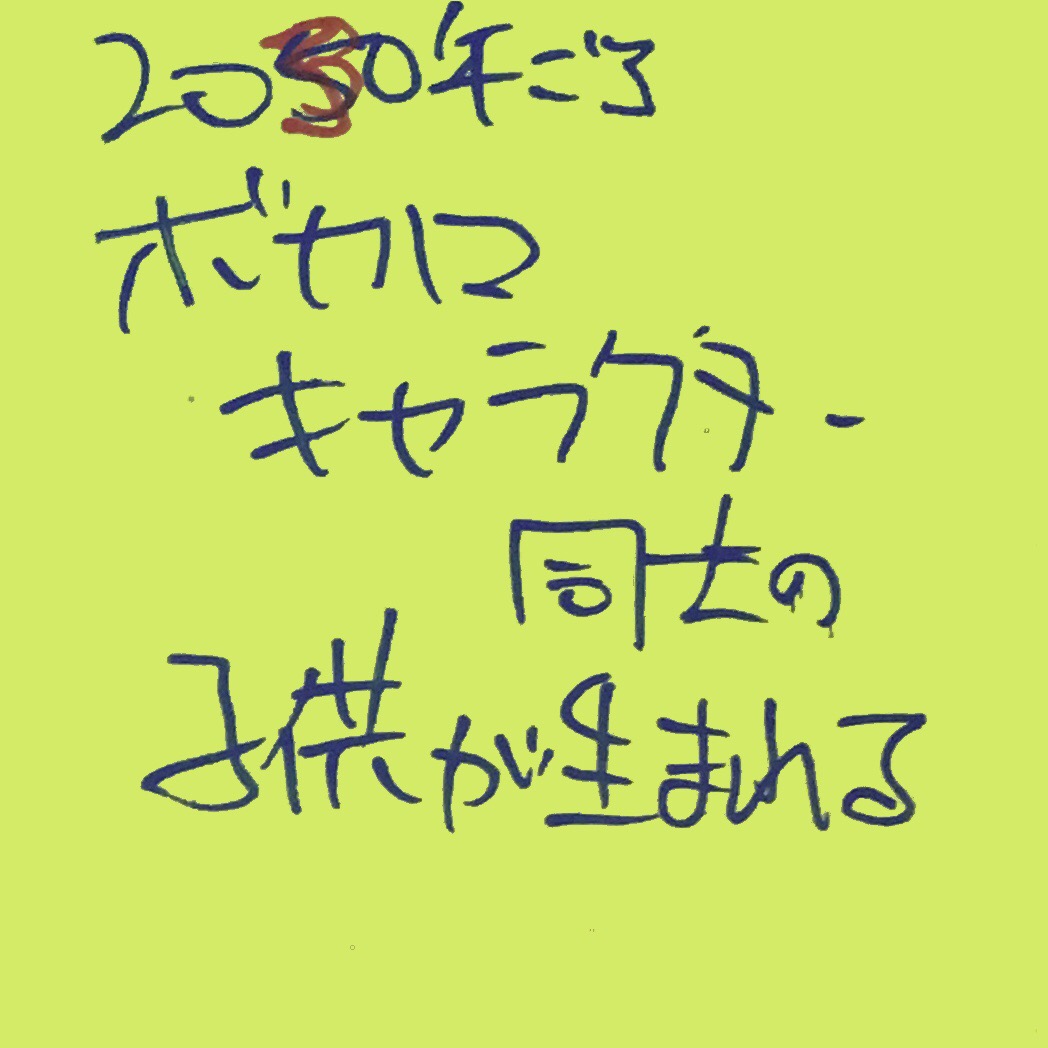 2030年ごろ
ボカロ
キャラクター
同士の
子供が生まれる